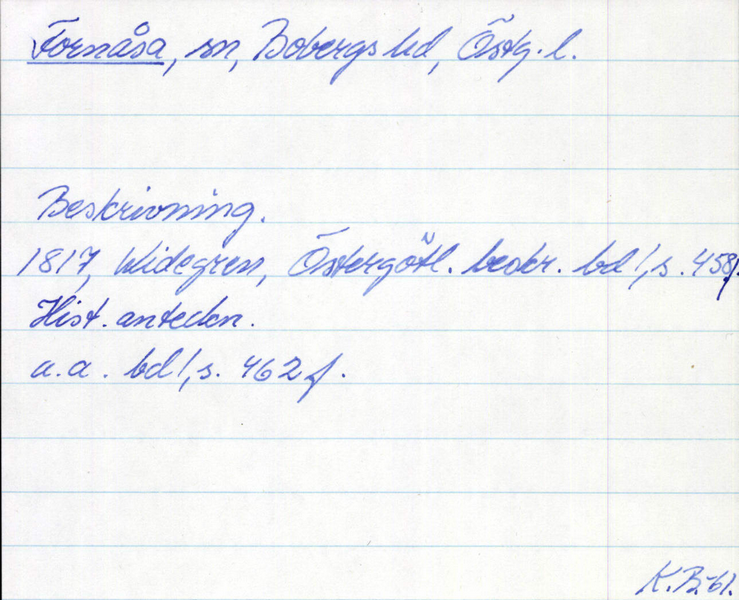 Fornåsa, sn, Bobergs hd, Östg. l.
Beskrivning.
1817, Widegren, Östergötl. beskr. bd 1, s. 458f.
Hist. anteckn.
a.a. bd 1, s. 462 f.
K.B.-61.